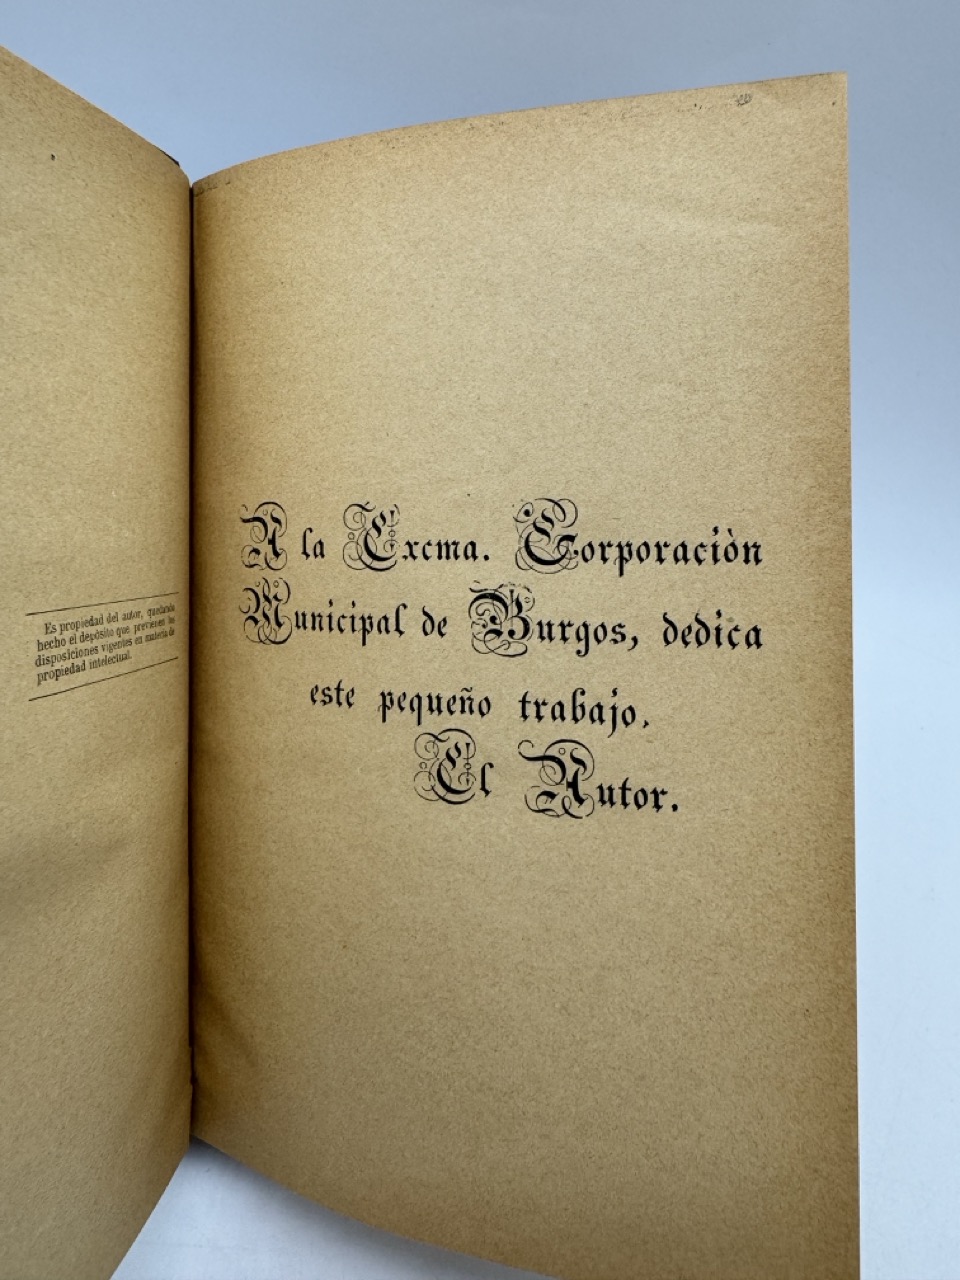 Es propiedad del autor, quedando
hecho el depósito que previenen las
disposiciones vigentes en materia de
propiedad intelectual.
A la Excma. Corporaciòn
Municipal de Burgos, dedica
este pequeño trabajo.
El Autor.